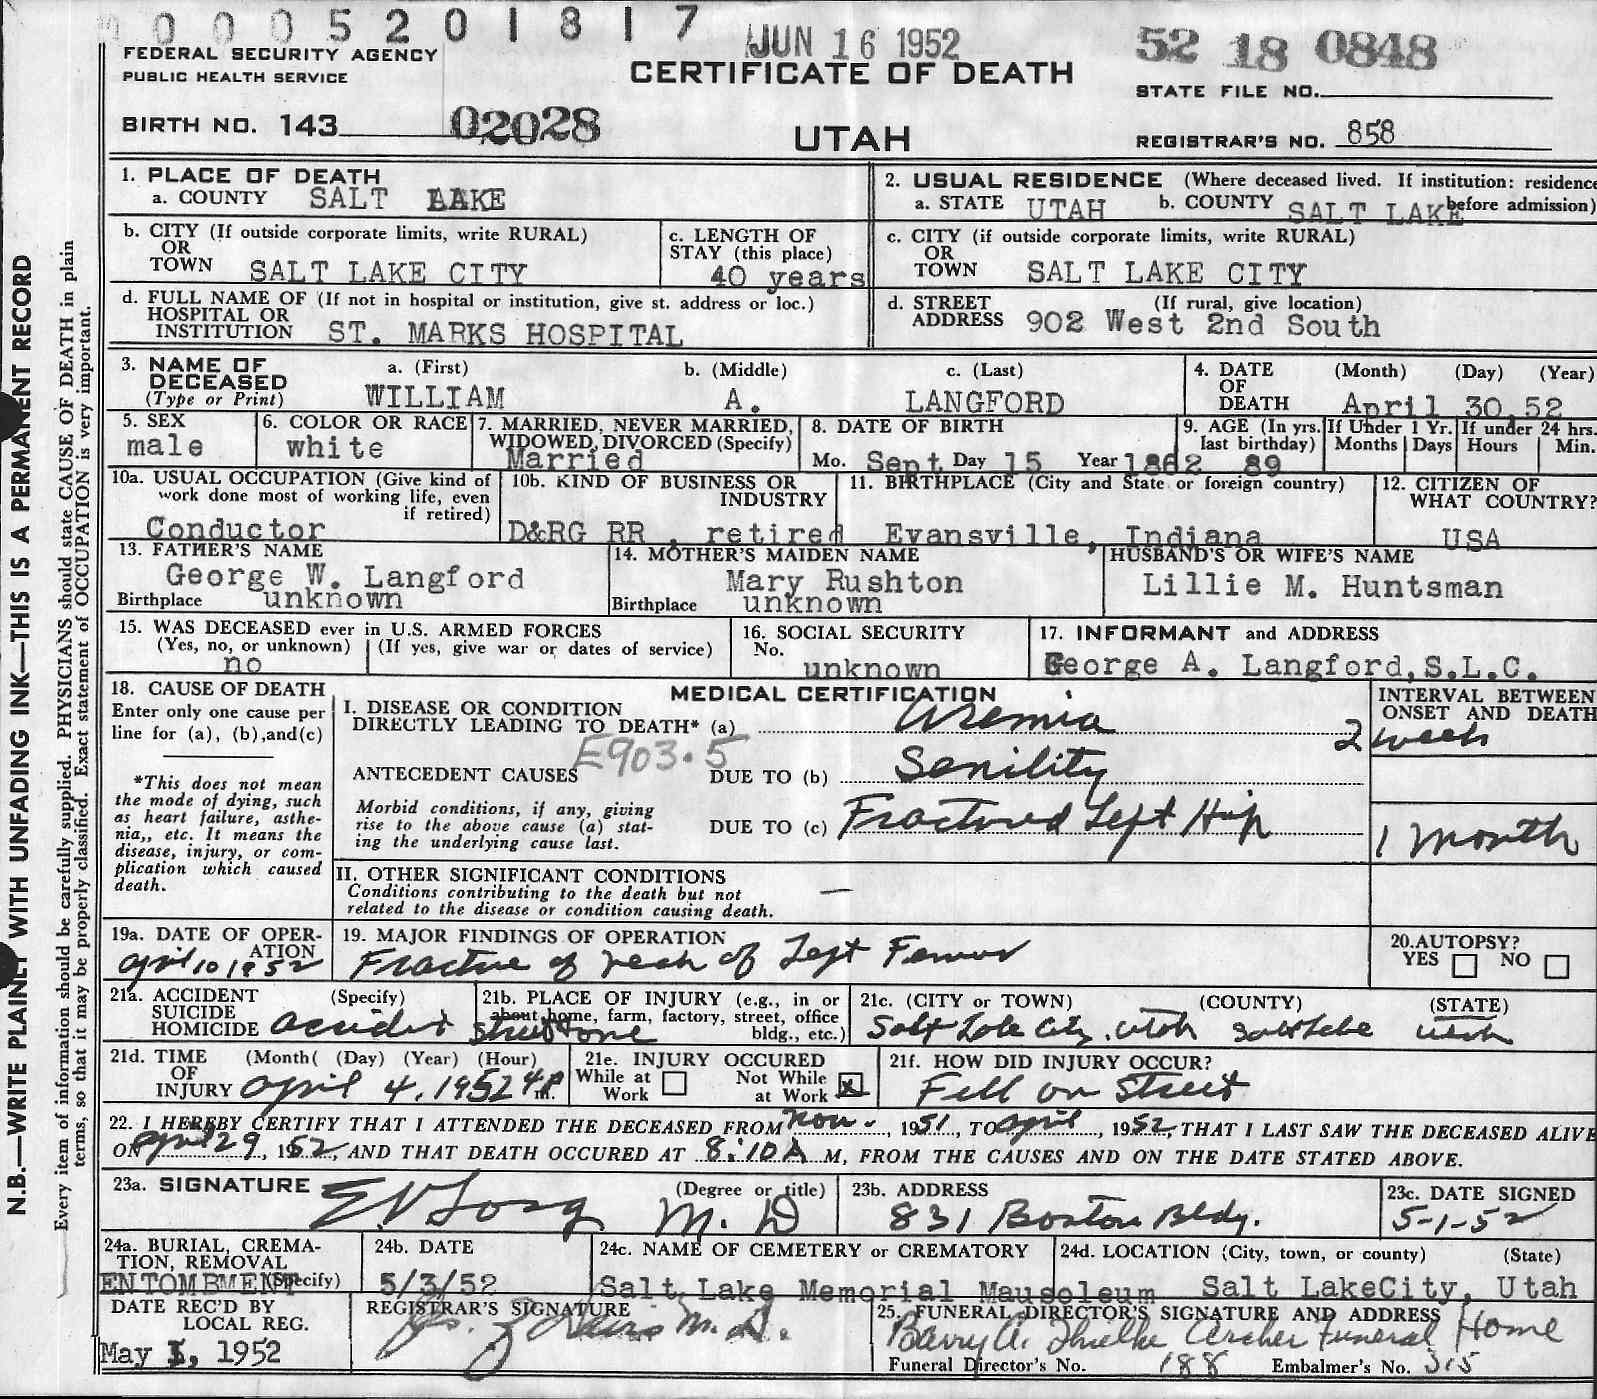 0 0 0 5 2 0 1 8 1 7
JUN 16 1952
52 18 0848
FEDERAL SECURITY AGENCY
PUBLIC HEALTH SERVICE
CERTIFICATE OF DEATH
STATE FILE NO.
BIRTH NO. 143 02028
UTAH
REGISTRAR'S NO. 858
N.B.—WRITE PLAINLY WITH UNFADING INK—THIS IS A PERMANENT RECORD
Every item of information should be carefully supplied. PHYSICIANS should state CAUSE OF DEATH in plain
terms, so that it may be properly classified. Exact statement of OCCUPATION is very important.
1. PLACE OF DEATH
a. COUNTY SALT LAKE
2. USUAL RESIDENCE (Where deceased lived. If institution: residence
before admission)
a. STATE UTAH b. COUNTY SALT LAKE
b. CITY (If outside corporate limits, write RURAL)
OR
TOWN SALT LAKE CITY
c. LENGTH OF
STAY (this place)
40 years
c. CITY (if outside corporate limits, write RURAL)
OR
TOWN SALT LAKE CITY
d. FULL NAME OF (If not in hospital or institution, give st. address or loc.)
HOSPITAL OR
INSTITUTION ST. MARKS HOSPITAL
d. STREET (If rural, give location)
ADDRESS 902 West 2nd South
3. NAME OF
DECEASED
(Type or Print)
a. (First) b. (Middle) c. (Last)
WILLIAM A. LANGFORD
4. DATE (Month) (Day) (Year)
OF
DEATH April 30 52
5. SEX
male
6. COLOR OR RACE
white
7. MARRIED, NEVER MARRIED,
WIDOWED, DIVORCED (Specify)
Married
8. DATE OF BIRTH
Mo. Sept Day 15 Year 1862
9. AGE (In yrs.
last birthday)
89
If Under 1 Yr.
Months Days
If under 24 hrs.
Hours Min.
10a. USUAL OCCUPATION (Give kind of
work done most of working life, even
if retired)
Conductor
10b. KIND OF BUSINESS OR
INDUSTRY
D&RG RR , retired
11. BIRTHPLACE (City and State or foreign country)
Evansville, Indiana
12. CITIZEN OF
WHAT COUNTRY?
USA
13. FATHER'S NAME
George W. Langford
Birthplace unknown
14. MOTHER'S MAIDEN NAME
Mary Rushton
Birthplace unknown
HUSBAND'S OR WIFE'S NAME
Lillie M. Huntsman
15. WAS DECEASED ever in U.S. ARMED FORCES
(Yes, no, or unknown) (If yes, give war or dates of service)
no
16. SOCIAL SECURITY
No.
unknown
17. INFORMANT and ADDRESS
George A. Langford, S.L.C.
18. CAUSE OF DEATH
Enter only one cause per
line for (a), (b), and (c)
*This does not mean
the mode of dying, such
as heart failure, asthe-
nia,, etc. It means the
disease, injury, or com-
plication which caused
death.
MEDICAL CERTIFICATION
INTERVAL BETWEEN
ONSET AND DEATH
I. DISEASE OR CONDITION
DIRECTLY LEADING TO DEATH* (a) Uremia 2 week
E903.5
ANTECEDENT CAUSES DUE TO (b) Senility
Morbid conditions, if any, giving
rise to the above cause (a) stat-
ing the underlying cause last.
DUE TO (c) Fractured Left Hip 1 month
II. OTHER SIGNIFICANT CONDITIONS
Conditions contributing to the death but not
related to the disease or condition causing death.
—
19a. DATE OF OPER-
ATION
April 10 1952
19. MAJOR FINDINGS OF OPERATION
Fracture of neck of Left Femur
20. AUTOPSY?
YES NO
21a. ACCIDENT (Specify)
SUICIDE
HOMICIDE accident
21b. PLACE OF INJURY (e.g., in or
about home, farm, factory, street, office
bldg., etc.)
Street
21c. (CITY or TOWN) (COUNTY) (STATE)
Salt Lake City, Utah Salt Lake Utah
21d. TIME (Month( (Day) (Year) (Hour)
OF
INJURY April 4, 1952 4 P m.
21e. INJURY OCCURED
While at Not While
Work at Work x
21f. HOW DID INJURY OCCUR?
Fell on Street
22. I HEREBY CERTIFY THAT I ATTENDED THE DECEASED FROM Nov. , 1951, TO April , 1952, THAT I LAST SAW THE DECEASED ALIVE
ON April 29, 1952, AND THAT DEATH OCCURED AT 8:10 A M, FROM THE CAUSES AND ON THE DATE STATED ABOVE.
23a. SIGNATURE (Degree or title)
E V Long M. D
23b. ADDRESS
831 Boston Bldg.
23c. DATE SIGNED
5-1-52
24a. BURIAL, CREMA-
TION, REMOVAL
(Specify)
ENTOMBMENT
24b. DATE
5/3/52
24c. NAME OF CEMETERY or CREMATORY
Salt Lake Memorial Mausoleum
24d. LOCATION (City, town, or county) (State)
Salt LakeCity, Utah
DATE REC'D BY
LOCAL REG.
May 1, 1952
REGISTRAR'S SIGNATURE
M. D.
25. FUNERAL DIRECTOR'S SIGNATURE AND ADDRESS
Barry A. Archer Funeral Home
Funeral Director's No. 188 Embalmer's No. 315